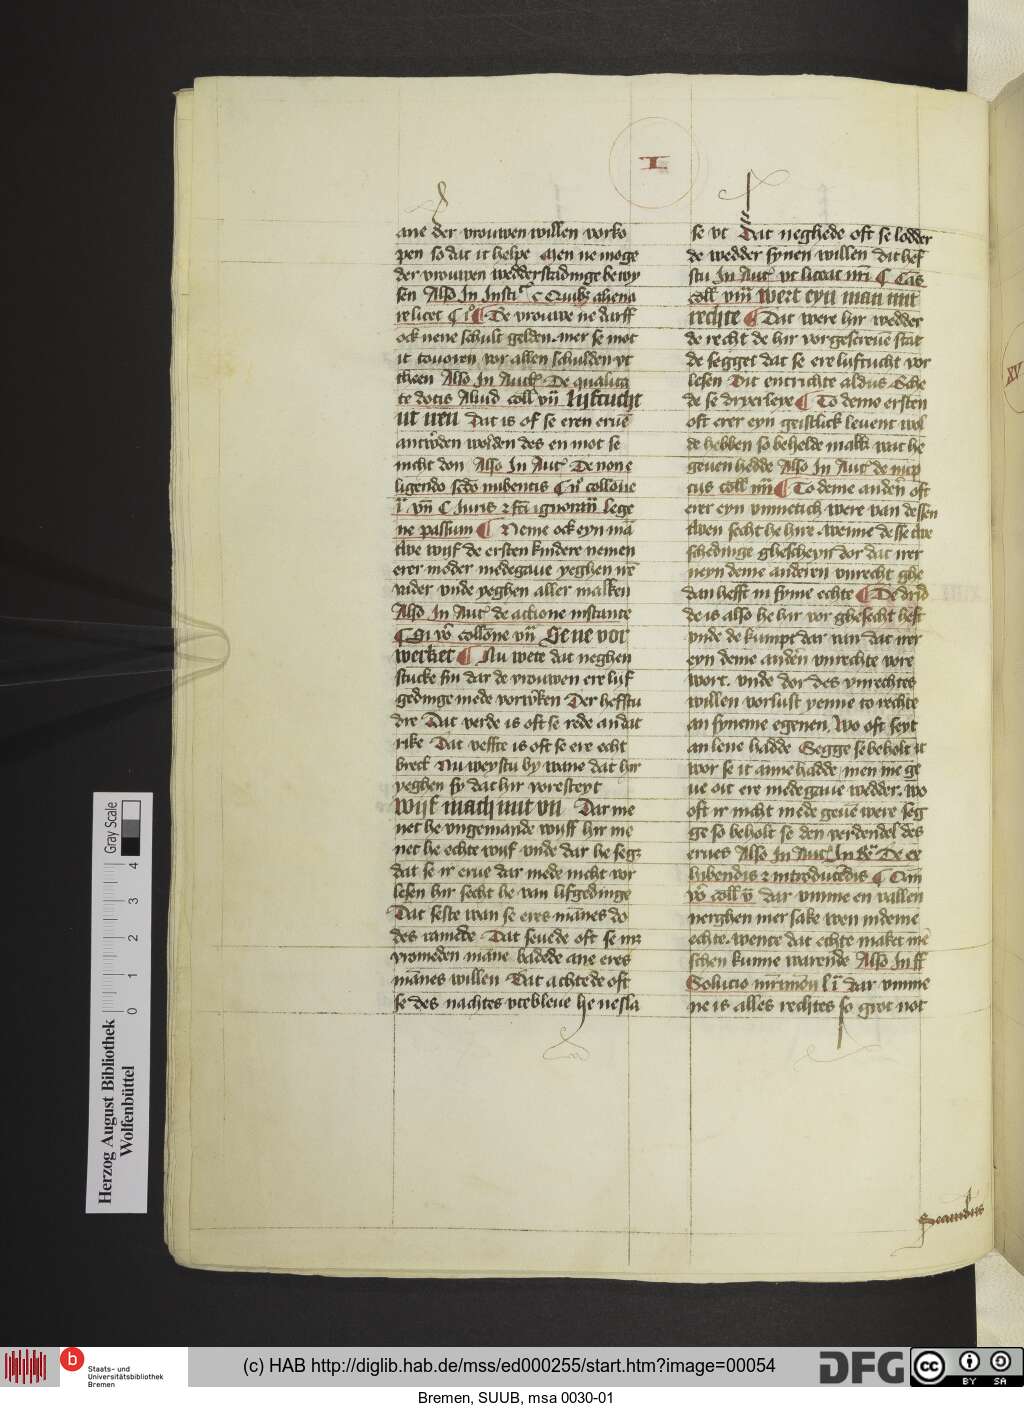 I
ane der vrouwen willen vorko
pen so dat it helpe Men ne moge
der vrouwen wedderstadinge bewy
sen Also In Insti
relicet De vrouwe ne darff
ock nene schult gelden mer se mot
it touoren vor allen schulden vt
theen Also In De qualita
te dotis Aliud coll vij lyftucht
Dat is of se eren erue
antworden wolden des en mot se
nicht don Also In Aut De non e
ligendo nubentis collone
Juris ignorant lege
ne passum Neme ock eyn mā
twe wyf de ersten kindere nemen
erer moder medegaue yeghen
vader vnde yeghen aller malken
Also In Aut de actione instante
collone vij Geue vor
werket Nu wete dat neghen
stucke sin dar de vrouwen ere lyf
gedinge mede vorwerken Der hefstu
dre Dat verde is oft se rede an dat
rike Dat veffte is oft se ere echt
breck Nu weystu by wane dat hir
yeghen sy dat hir vore steyt
Wijf mach mit vn Dar me
net he vngemande wyff hir me
net he echte wyf vnde dar he segt
dat se ir erue dar mede nicht vor
lesen hir secht he van lifgedinge
Dat seste wan se eres mānes do
des ramede Dat seuede oft se mit
vromeden māne badede ane eres
mānes willen Dat achtede oft
se des nachtes vtebleue he ne sla
se vt Dat neghede oft se lodder
de wedder synen willen dit hef
stu In Aut vt liceat
coll viij Wert eyn man mit
rechte Dat were hir wedder
de recht de hir vorgescreue stat
de segget dat se ere lyftucht vor
lesen Dit entrichte aldus Sche
de se dryerleye To deme ersten
oft erer eyn geistlick leuent wol
de hebben so beholde malk wat he
geuen hedde Also In Aut de nup
tiis coll iiij To deme andern oft
erer eyn vnmetich were van dessen
twen secht he hire wenne desse twe
schedinge ghescheyn dor dat irer
neyn deme anderen vnrecht ghe
dan hefft in syme echte De drid
de is also he hir vor ghesecht heft
vnde de kumpt dar van dat irer
eyn deme andern vnrechte vore
wort vnde dor des vnrechtes
willen vorlust yenne to rechte
an syneme egenen Wo oft seyt
an lene hadde Segge se beholt it
wor se it anne hadde men me ge
ue oit ere medegaue wedder wo
oft ir nicht mede geuē were seg
ge so beholt se den verdendel des
erues Also In Aut In De ex
hibendis introductdis
coll v dar vmme en vallen
nerghen mer sake wen in deme
echte wente dat echte maket mē
schen kunne warende Also In ff
Solucio dar vmme
ne is alles rechtes so grot not
Secundus
XV
Gray Scale
0 1 2 3 4
Herzog August Bibliothek
Wolfenbüttel
b
Staats- und
Universitätsbibliothek
Bremen
(c) HAB http://diglib.hab.de/mss/ed000255/start.htm?image=00054
DFG
cc
BY SA
Bremen, SUUB, msa 0030-01